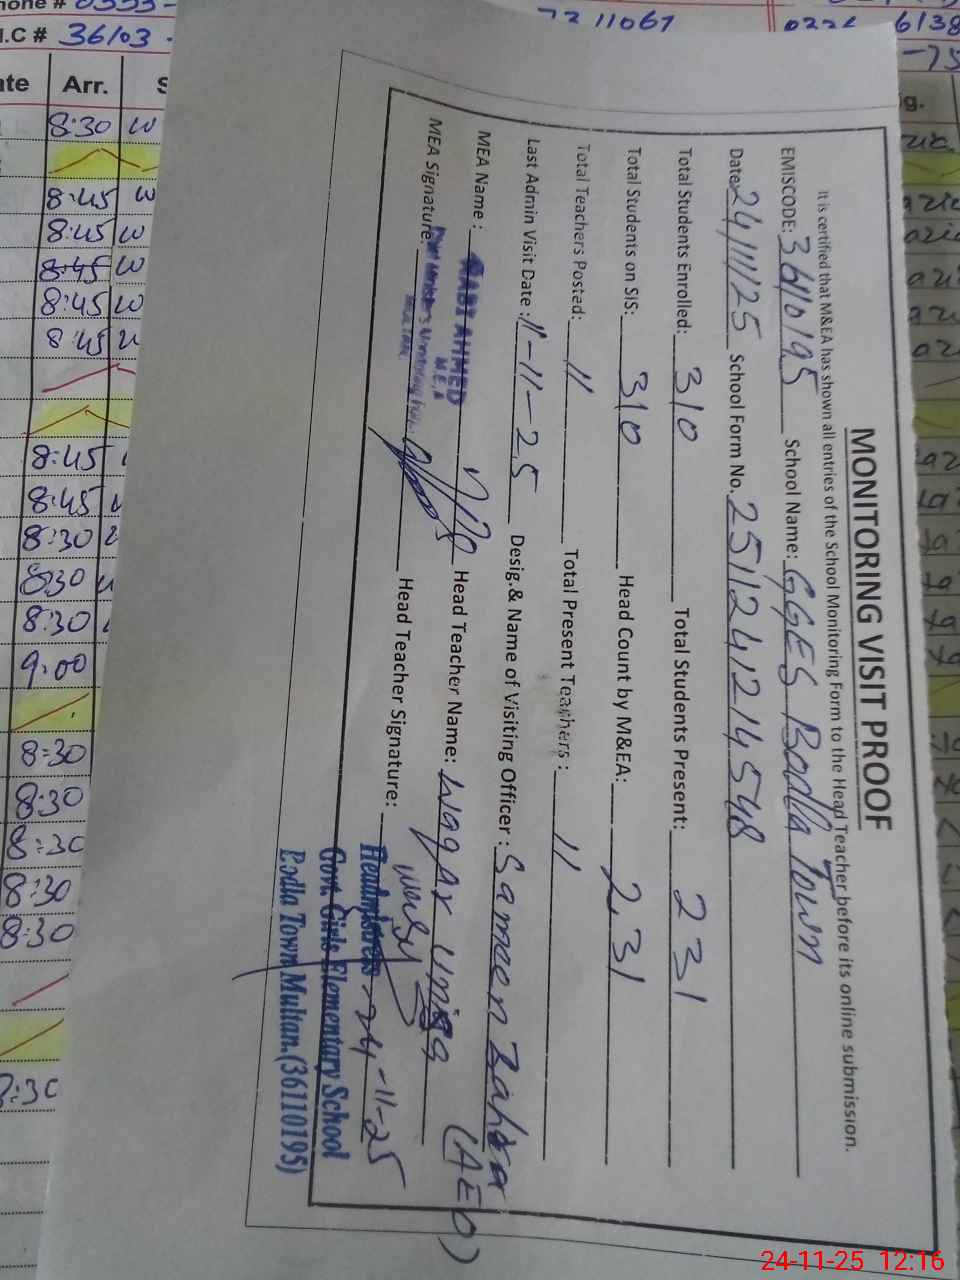 MONITORING VISIT PROOF
It is certified that M&EA has shown all entries of the School Monitoring Form to the Head Teacher before its online submission.
EMISCODE: 36110195 School Name: GGES Bodla Town
Date: 24/11/25 School Form No. 2511241214548
Total Students Enrolled: 310 Total Students Present: 231
Total Students on SIS: 310 Head Count by M&EA: 231
Total Teachers Posted: 11 Total Present Teachers: 11
Last Admin Visit Date: 11-11-25 Desig.& Name of Visiting Officer: Sameen Zahra (AEO)
MEA Name: AHMED Head Teacher Name: Waqar Unisa
M.E.A
MEA Signature: Head Teacher Signature:
24-11-25
Headmistress
Govt. Girls Elementary School
Bodla Town Multan. (36110195)
36103
Arr.
8:30
8:45
8:45
8:45
8:45
8:45
8:45
8:45
8:30
8:30
8:30
9:00
8:30
8:30
8:30
8:30
8:30
24-11-25 12:16